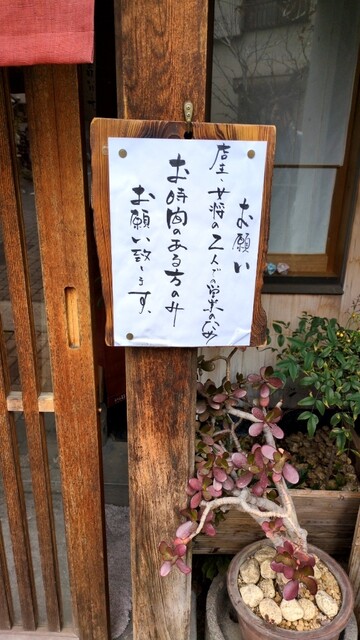 お願い
店主、女将の2人での営業のため
お時間のある方のみ
お願い致します。